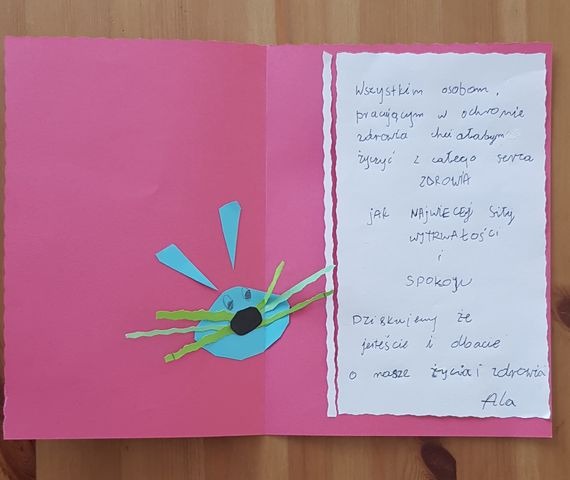 Wszystkim osobom,
pracującym w ochronie
zdrowia chciałabym
życzyć z całego serca
ZDROWIA
jak NAJWIĘCEJ siły
WYTRWAŁOŚCI
i
SPOKOJU
Dziękujemy że
jesteście i dbacie
o nasze życia i zdrowia
Ala